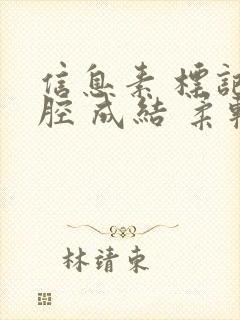 信息素 標記
腔 成結 柔軟
林靖東